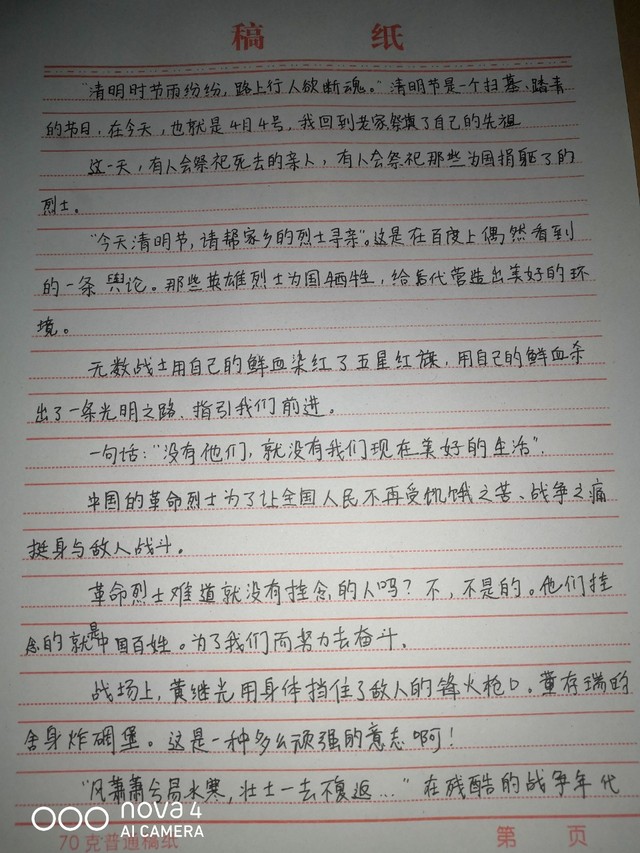 稿 纸
“清明时节雨纷纷,路上行人欲断魂。”清明节是一个扫墓、踏青
的节日,在今天,也就是4月4号,我回到老家祭奠了自己的先祖
这一天,有人会祭祀死去的亲人,有人会祭祀那些为国捐躯了的
烈士。
“今天清明节,请帮家乡的烈士寻亲”。这是在百度上偶然看到
的一条舆论。那些英雄烈士为国牺牲,给后代营造出美好的环
境。
无数战士用自己的鲜血染红了五星红旗,用自己的鲜血杀
出了一条光明之路、指引我们前进。
一句话:“没有他们,就没有我们现在美好的生活”.
中国的革命烈士为了让全国人民不再受饥饿之苦、战争之痛
挺身与敌人战斗。
革命烈士难道就没有挂念的人吗?不,不是的。他们挂
念的就是中国百姓。为了我们而努力去奋斗、
战场上,黄继光用身体挡住了敌人的锋火枪口。董存瑞的
舍身炸碉堡。这是一种多么顽强的意志啊!
“风萧萧兮易水寒,壮士一去不复返...”在残酷的战争年代
nova 4
AI CAMERA
70克普通稿纸
第 页